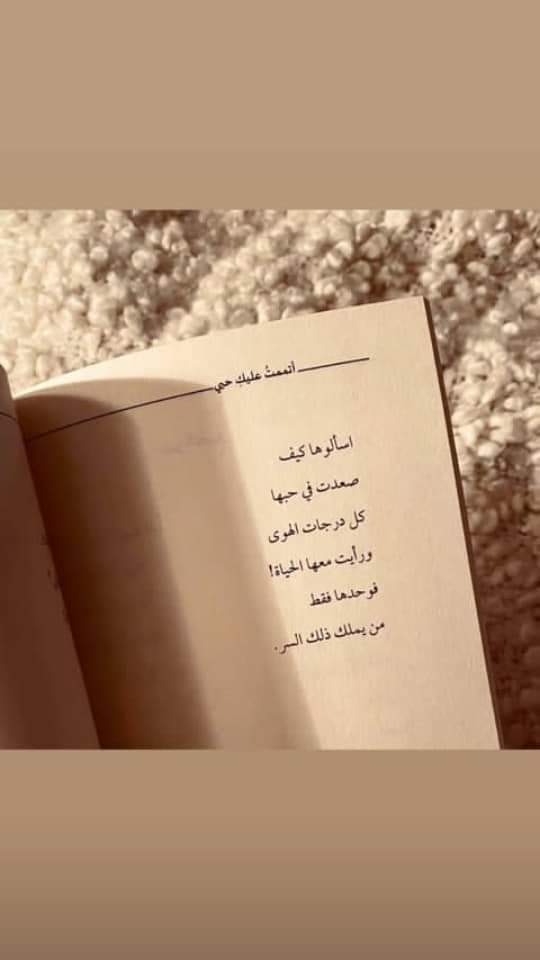 أتممتُ عليكِ حبي
اسألوها كيف
صعدت في حبها
كل درجات الهوى
ورأيت معها الحياة!
فوحدها فقط
من يملك ذلك السر.